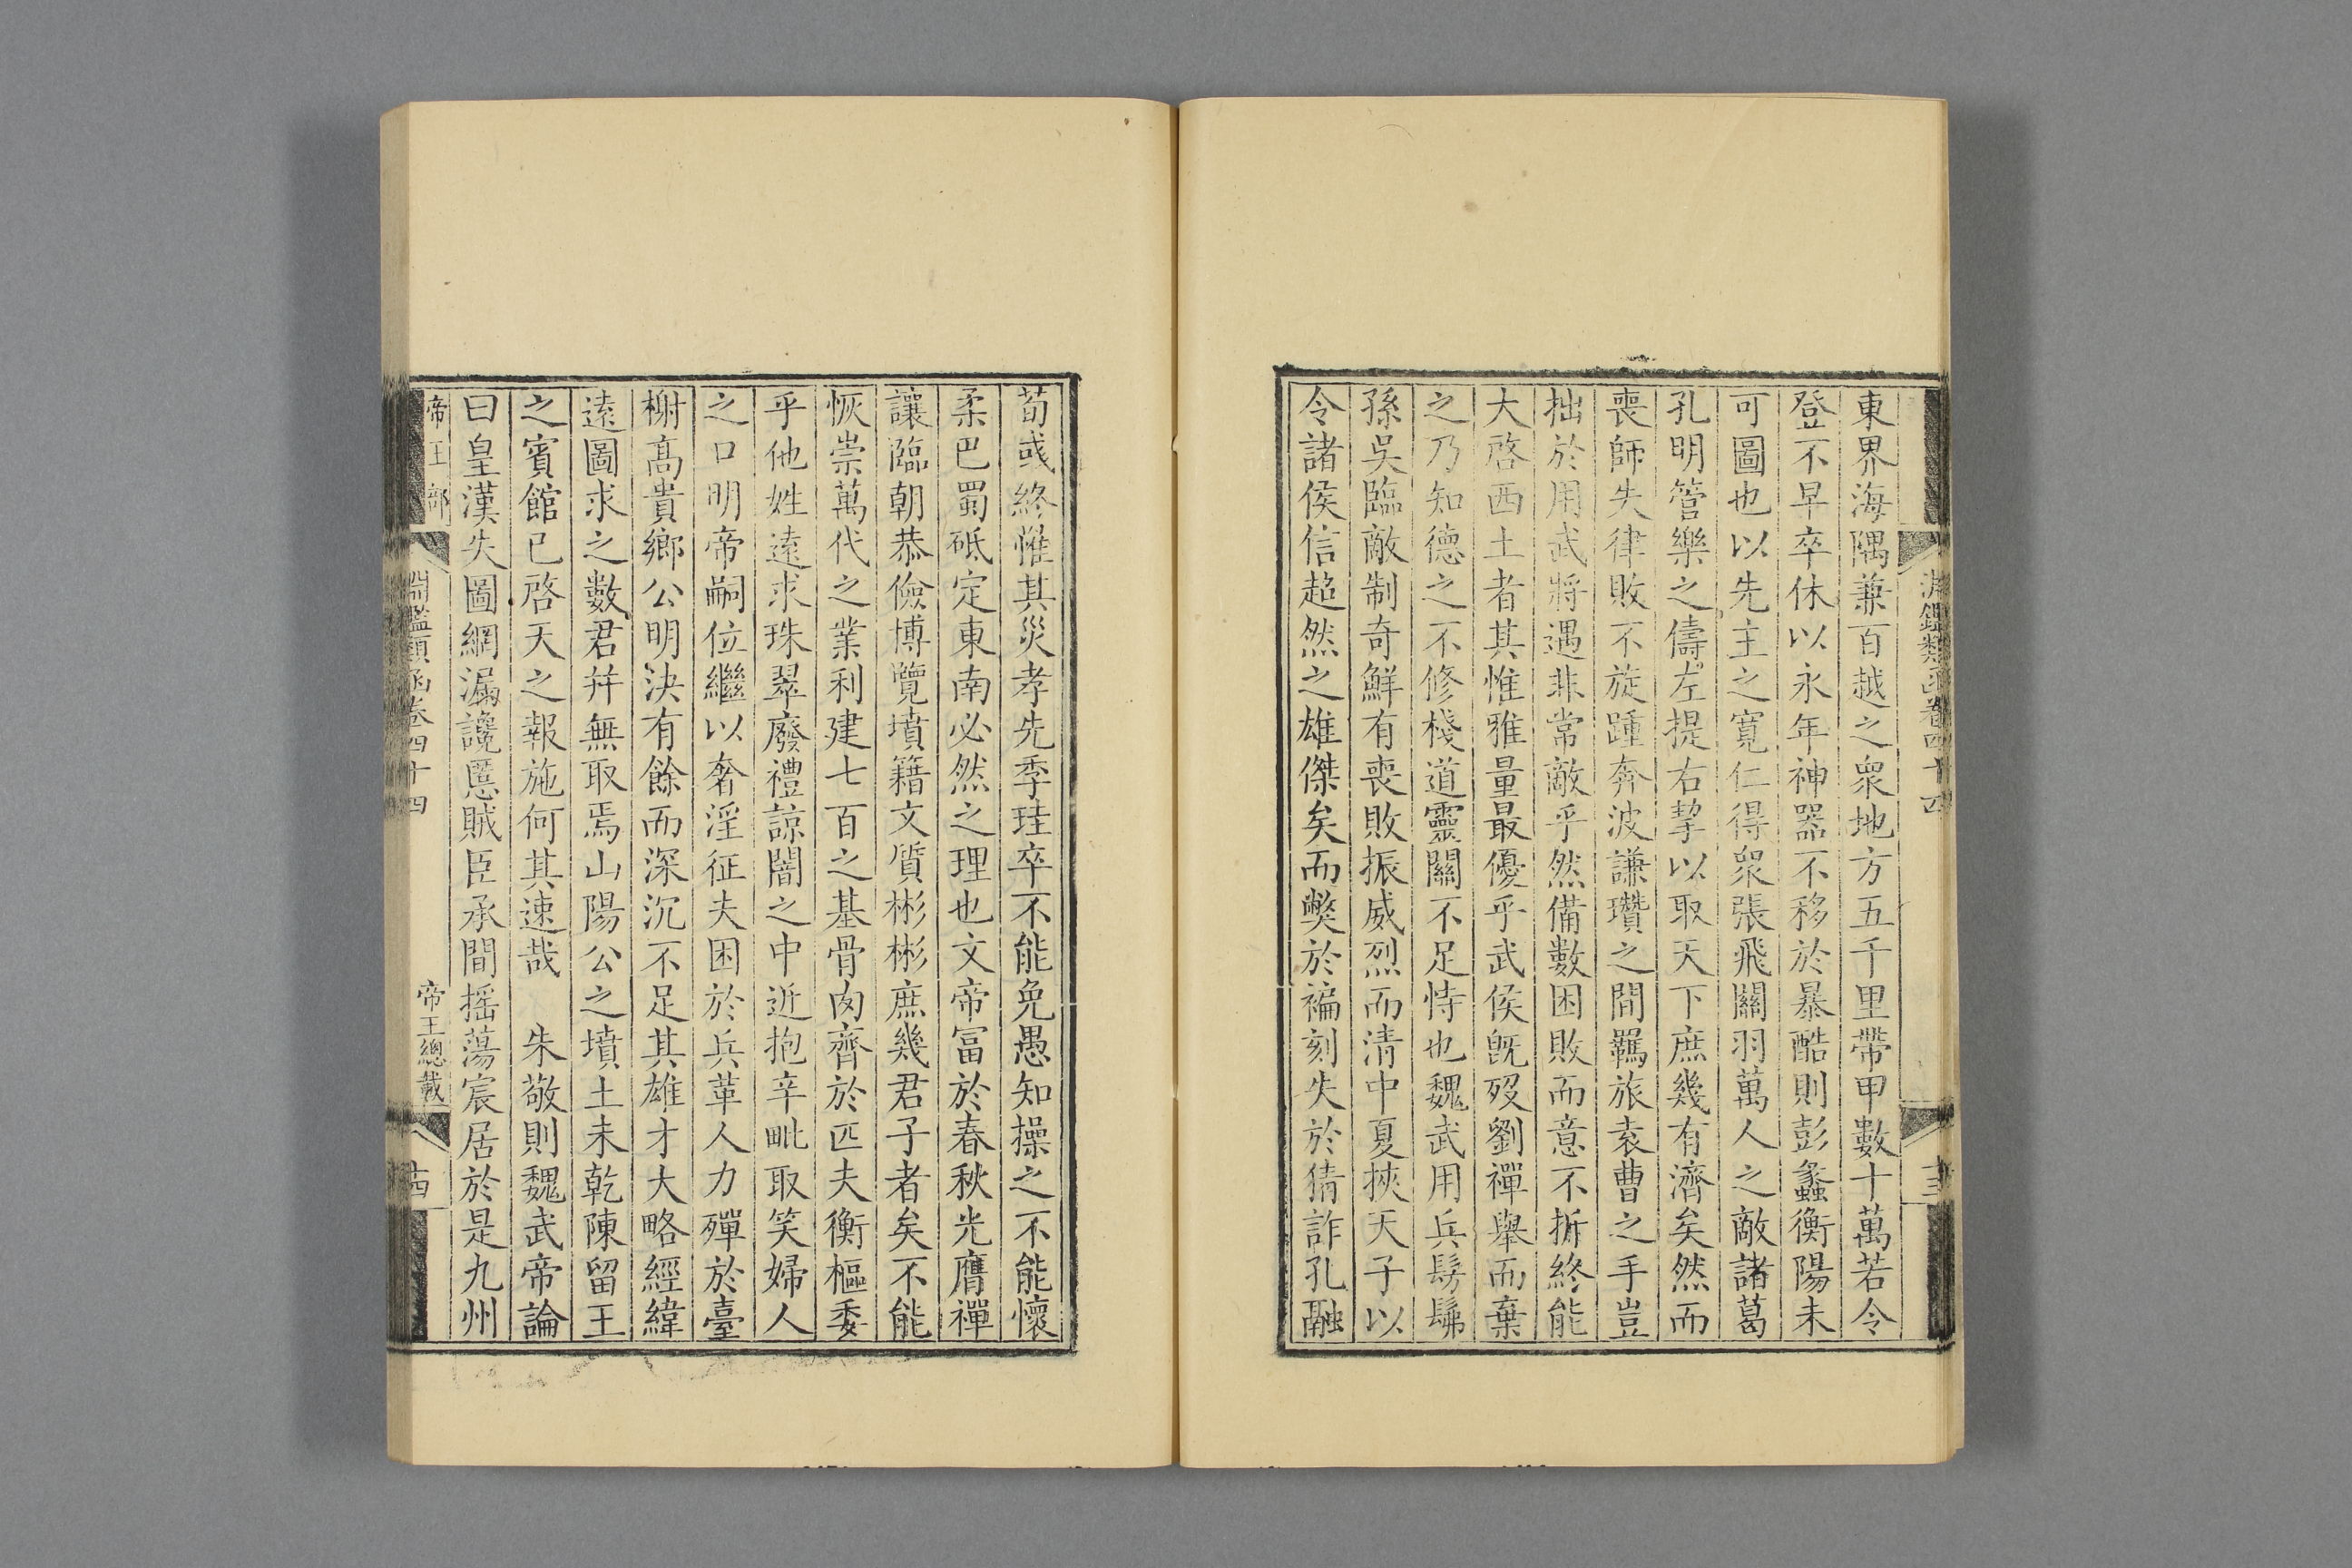 東界海隅兼百越之衆地方五千里帶甲數十萬若令
登不早卒休以永年神器不移於暴酷則彭蠡衡陽未
可圖也以先主之寬仁得衆張飛關羽萬人之敵諸葛
孔明管樂之儔左提右挈以取天下庶幾有濟矣然而
喪師失律敗不旋踵奔波謙瓚之間羈旅袁曹之手豈
拙於用武將遇非常敵乎然備數困敗而意不拆終能
大啓西土者其惟雅量最優乎武侯旣歿劉禪舉而棄
之乃知德之不修棧道靈關不足恃也魏武用兵髣髴
孫吳臨敵制奇鮮有喪敗振威烈而清中夏挾天子以
令諸侯信超然之雄傑矣而弊於褊刻失於猜詐孔融
淵鑑類函卷四十四
十三
荀彧終惟其災孝先季珪卒不能免愚知操之不能懷
柔巴蜀砥定東南必然之理也文帝冨於春秋光膺禪
讓臨朝恭儉博覽墳籍文質彬彬庶幾君子者矣不能
恢崇萬代之業利建七百之基骨肉齊於匹夫衡樞委
乎他姓遠求珠翠廢禮諒闇之中近抱辛毗取笑婦人
之口明帝嗣位繼以奢淫征夫困於兵革人力殫於臺
榭高貴鄉公明決有餘而深沉不足其雄才大略經緯
遠圖求之數君幷無取焉山陽公之墳土未乾陳留王
之賓館已啓天之報施何其速哉　朱敬則魏武帝論
曰皇漢失圖網漏讒慝賊臣承間搖蕩宸居於是九州
帝王部
淵鑑類函卷四十四
帝王總載
十四